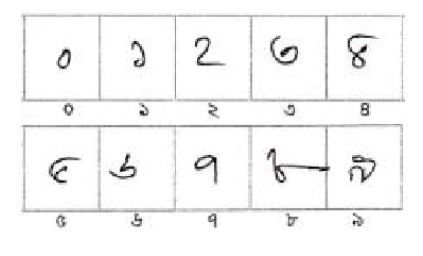 ০ ১ ২ ৩ ৪
০ ১ ২ ৩ ৪
৫ ৬ ৭ ৮ ৯
৫ ৬ ৭ ৮ ৯